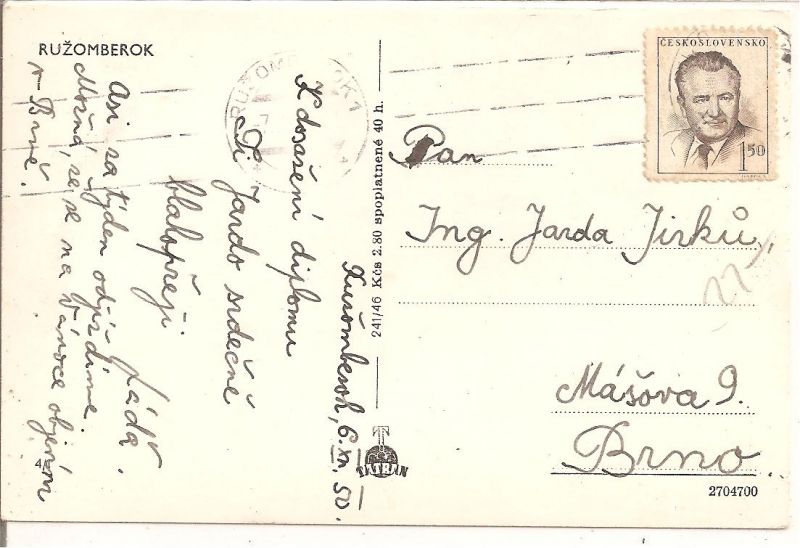 RUŽOMBEROK
Ružomberok, 6. XII. 50.
K dosažení diplomu
Ti Jardo srdečně
blahopřeji
Láďa.
Asi za týden odjíždíme.
Možná, že se na Vánoce objevím
v Brně.
241/46 Kčs 2.80 spoplatnené 40 h.
TATRAN
ČESKOSLOVENSKO
1 50
Pan
Ing. Jarda Jirků,
Mášova 9.
Brno
2704700